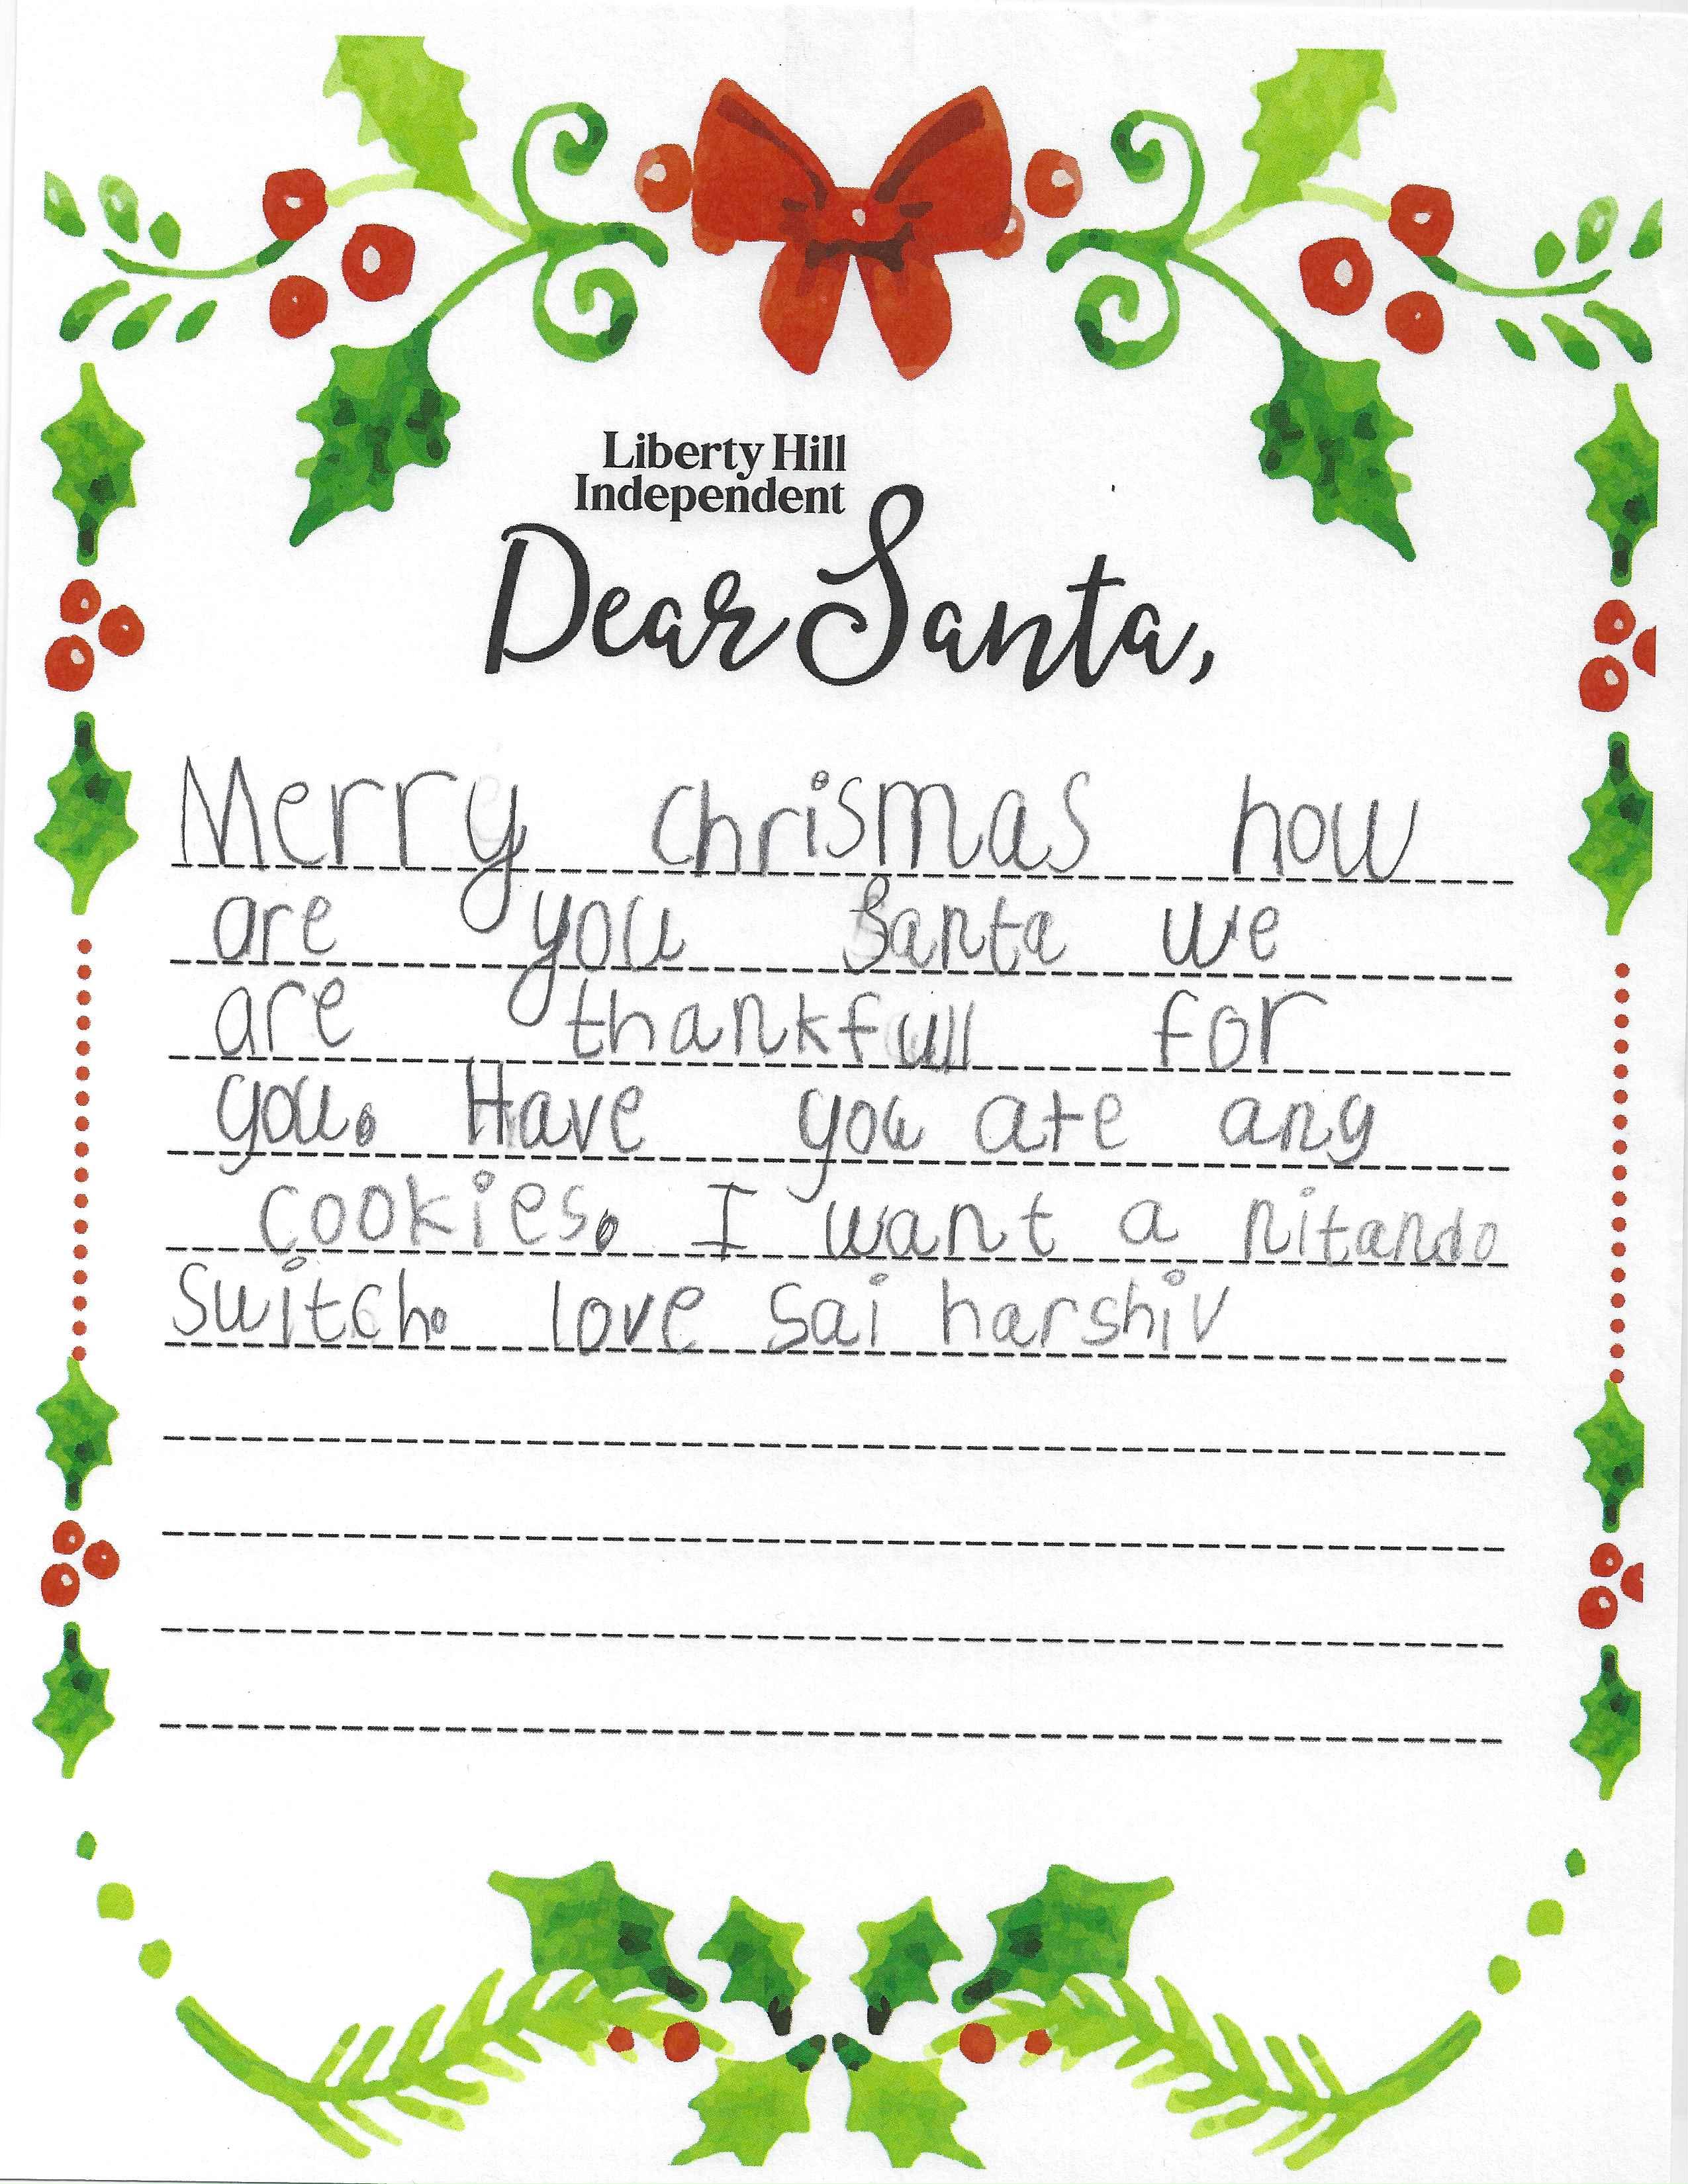 Liberty Hill
Independent
Dear Santa,
Merry chrismas how
are you Santa we
are thankfull for
you. Have you ate any
cookies. I want a nitando
switch. love sai harshiv